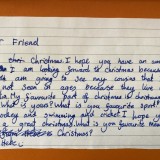 Friend
Christmas I hope you have an
I am looking forward to christmas because
I am going to see my cousins that
not seen so ages because they live
My favourite part of christmas is christmas
What is yours? What is you favourite sport?
and swimming and cricket I hope you
a great christmas! What is you favourite
Christmas?